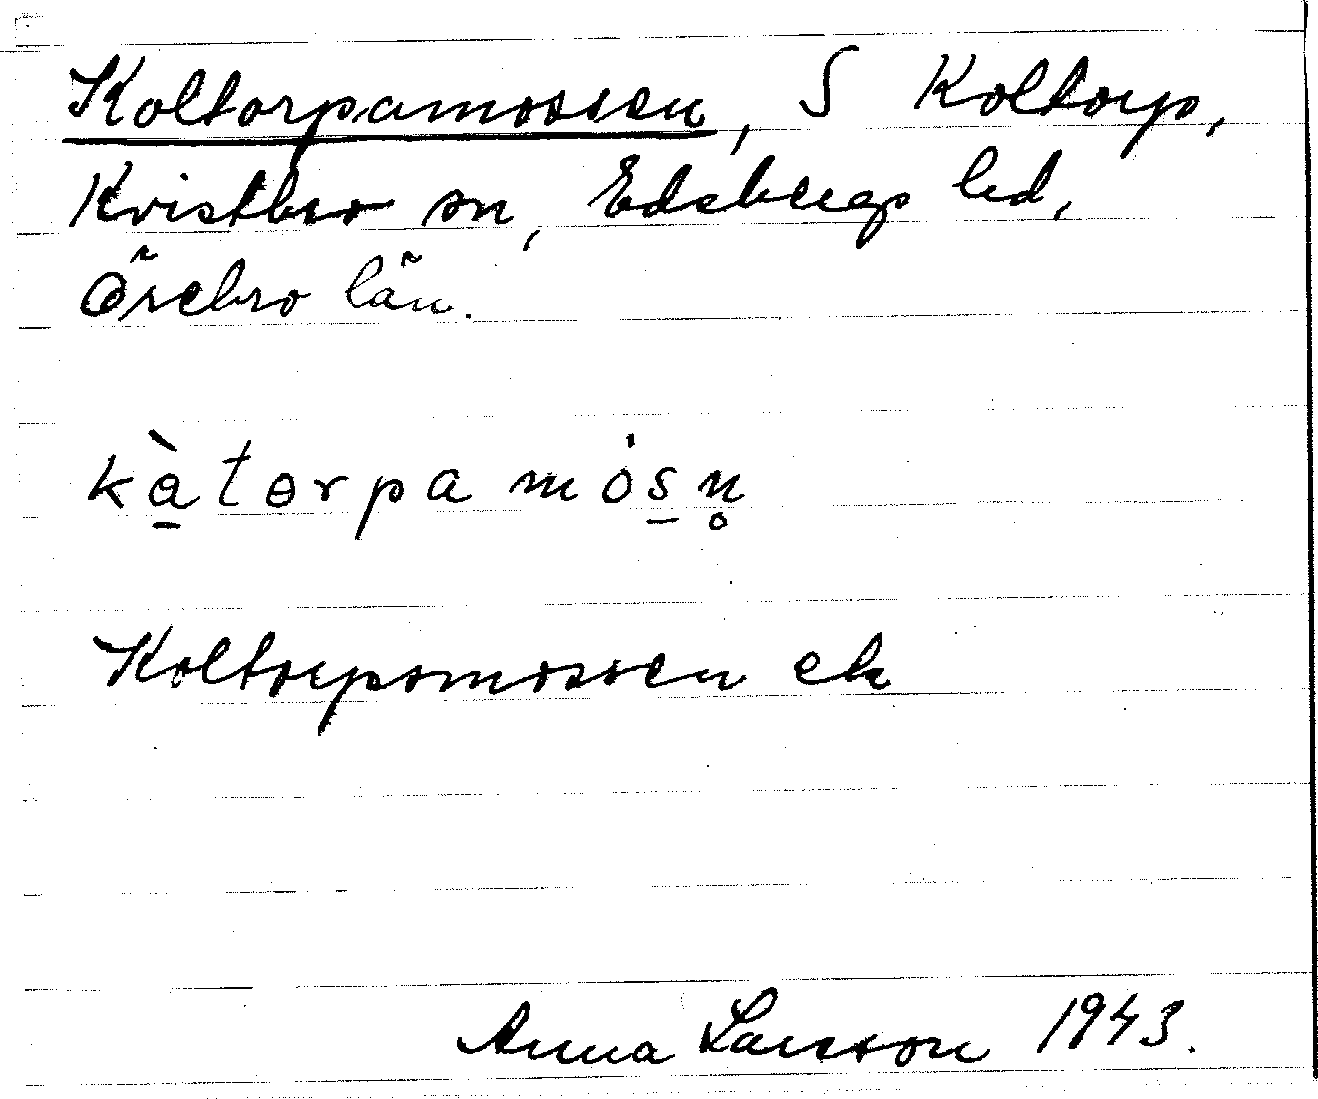 Koltorpamossen, S Koltorp,
Kvistbro sn, Edsbergs hd,
Örebro län.
kɑ̠̀tɵrpa mȯs̠n̥
Koltorpsmossen ek
Anna Larsson 1943.